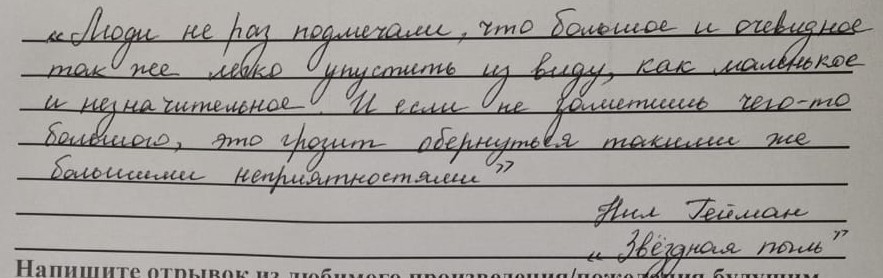 «Люди не раз подмечали, что большое и очевидное
так же легко упустить из виду, как маленькое
и незначительное. И если не заметишь чего-то
большого, это грозит обернуться такими же
большими неприятностями»
Нил Гейман
„Звёздная пыль”
Напишите отрывок из любимого произведения/пожелания будущим